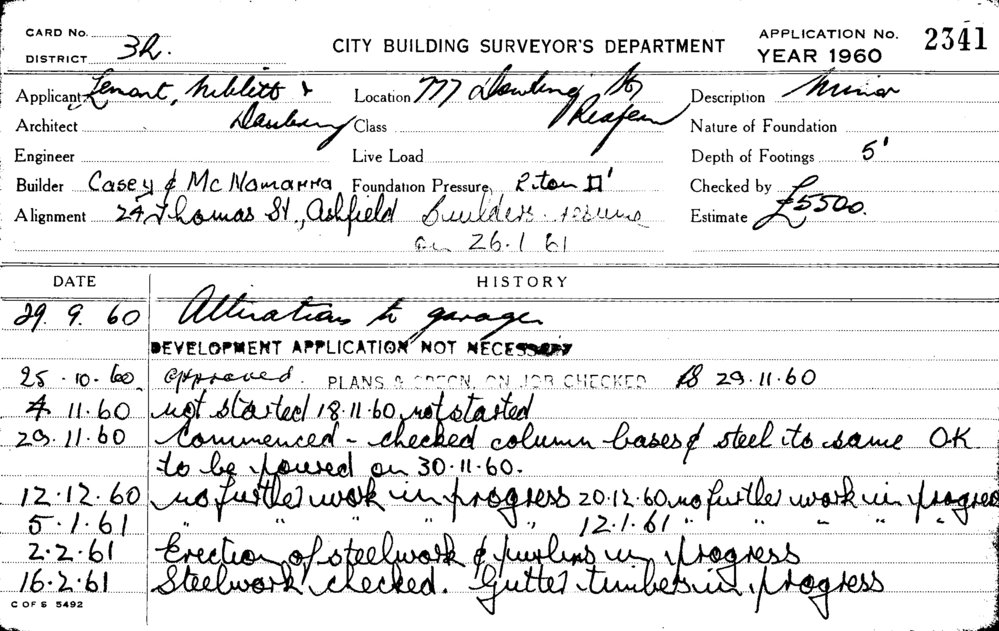 CARD No.
DISTRICT 3R.
CITY BUILDING SURVEYOR'S DEPARTMENT
APPLICATION No. 2341
YEAR 1960
Applicant Lenart, Niblett &
Location 777 Dowling St
Description Minor
Architect Danbury
Class Redfern
Nature of Foundation
Engineer
Live Load
Depth of Footings 5'
Builder Casey & McNamarra
Foundation Pressure 2 ton □'
Checked by
Alignment 24 Thomas St., Ashfield
Builders resume
Estimate £5500.
on 26.1.61
DATE HISTORY
29.9.60 Alterations to garage
DEVELOPMENT APPLICATION NOT NECESSARY
25.10.60 approved. PLANS & SPECN. ON JOB CHECKED 29.11.60
4 11.60 not started 18.11.60 not started
29.11.60 Commenced - checked column bases & steel to same OK
to be poured on 30.11.60.
12.12.60 no further work in progress 20.12.60 no further work in progress
5.1.61 " " " " " 12.1.61 " " " " "
2.2.61 Erection of steelwork & purlins in progress
16.2.61 Steelwork checked. Gutter timbers in progress
C OF S 5492